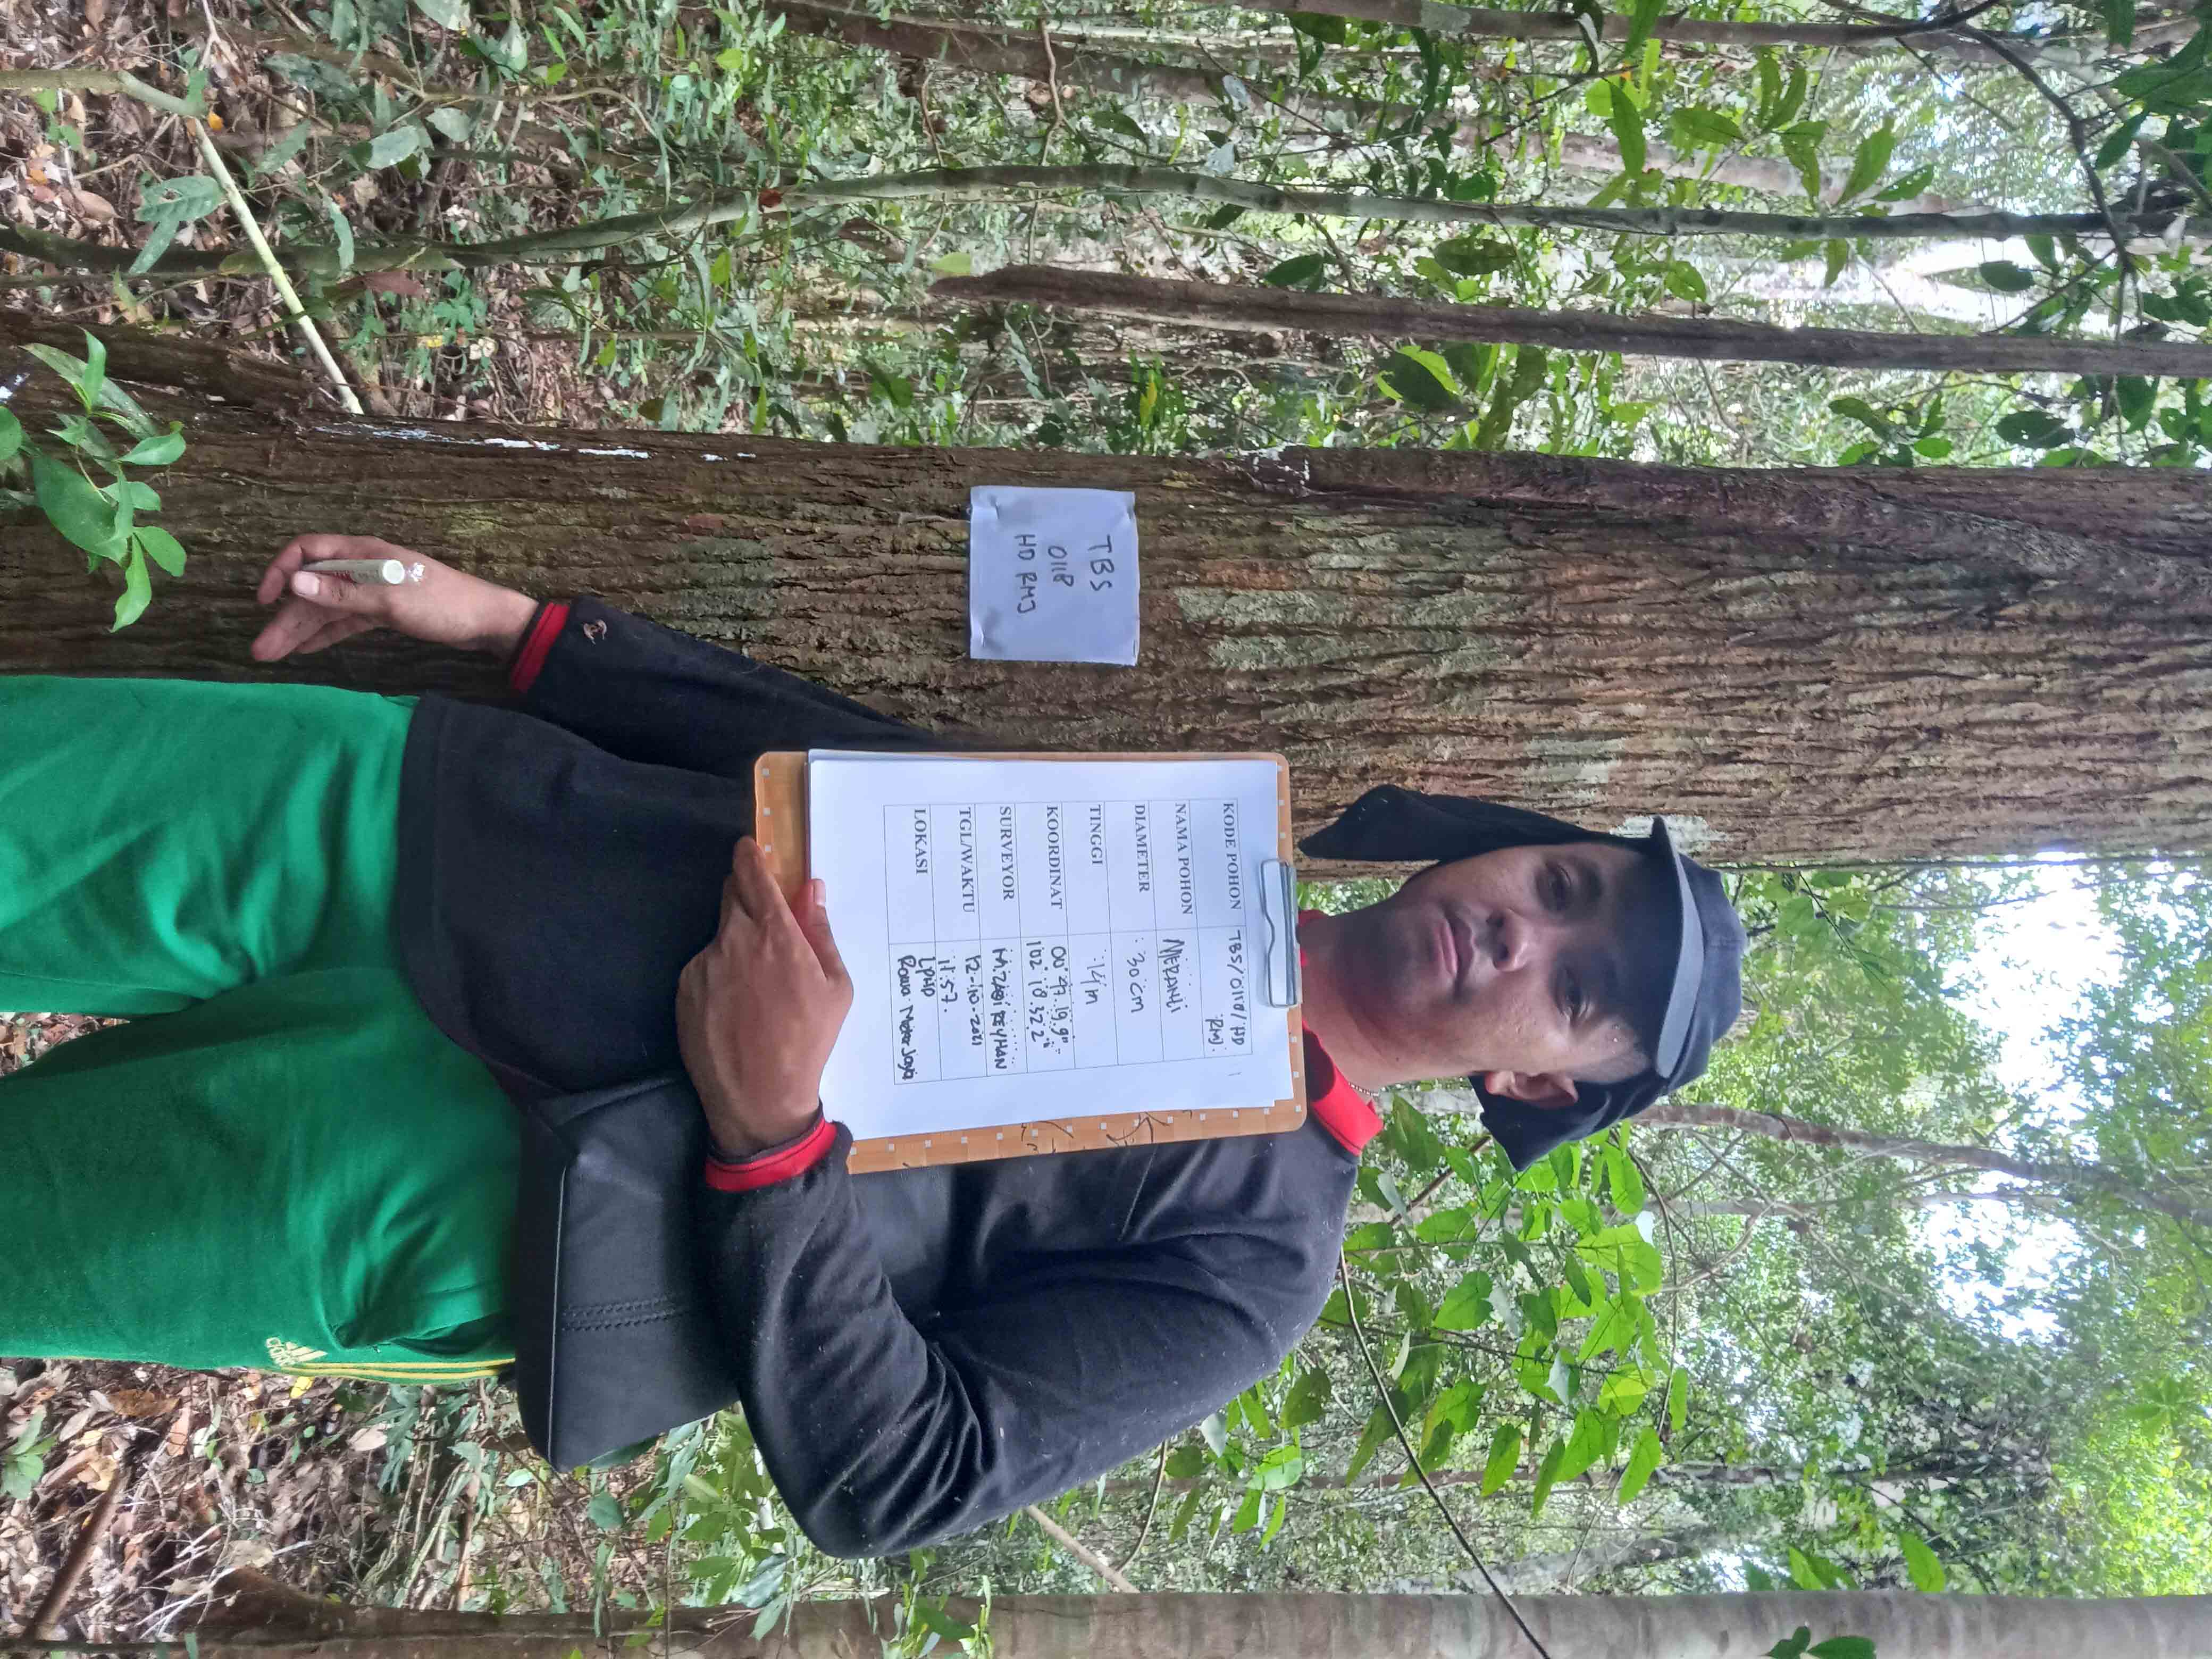 TBS
0118
HD RMJ
KODE POHON TBS/0118/HD
RMJ.
NAMA POHON MERANTI
DIAMETER 30 cm
TINGGI 14 m
KOORDINAT 00° 47. 19.9"
102° 18.32.2"
SURVEYOR M. ZABI REYHAN
TGL/WAKTU 12-10-2021
11.57.
LOKASI LPHD
Rawa Mekar Jaya
adidas